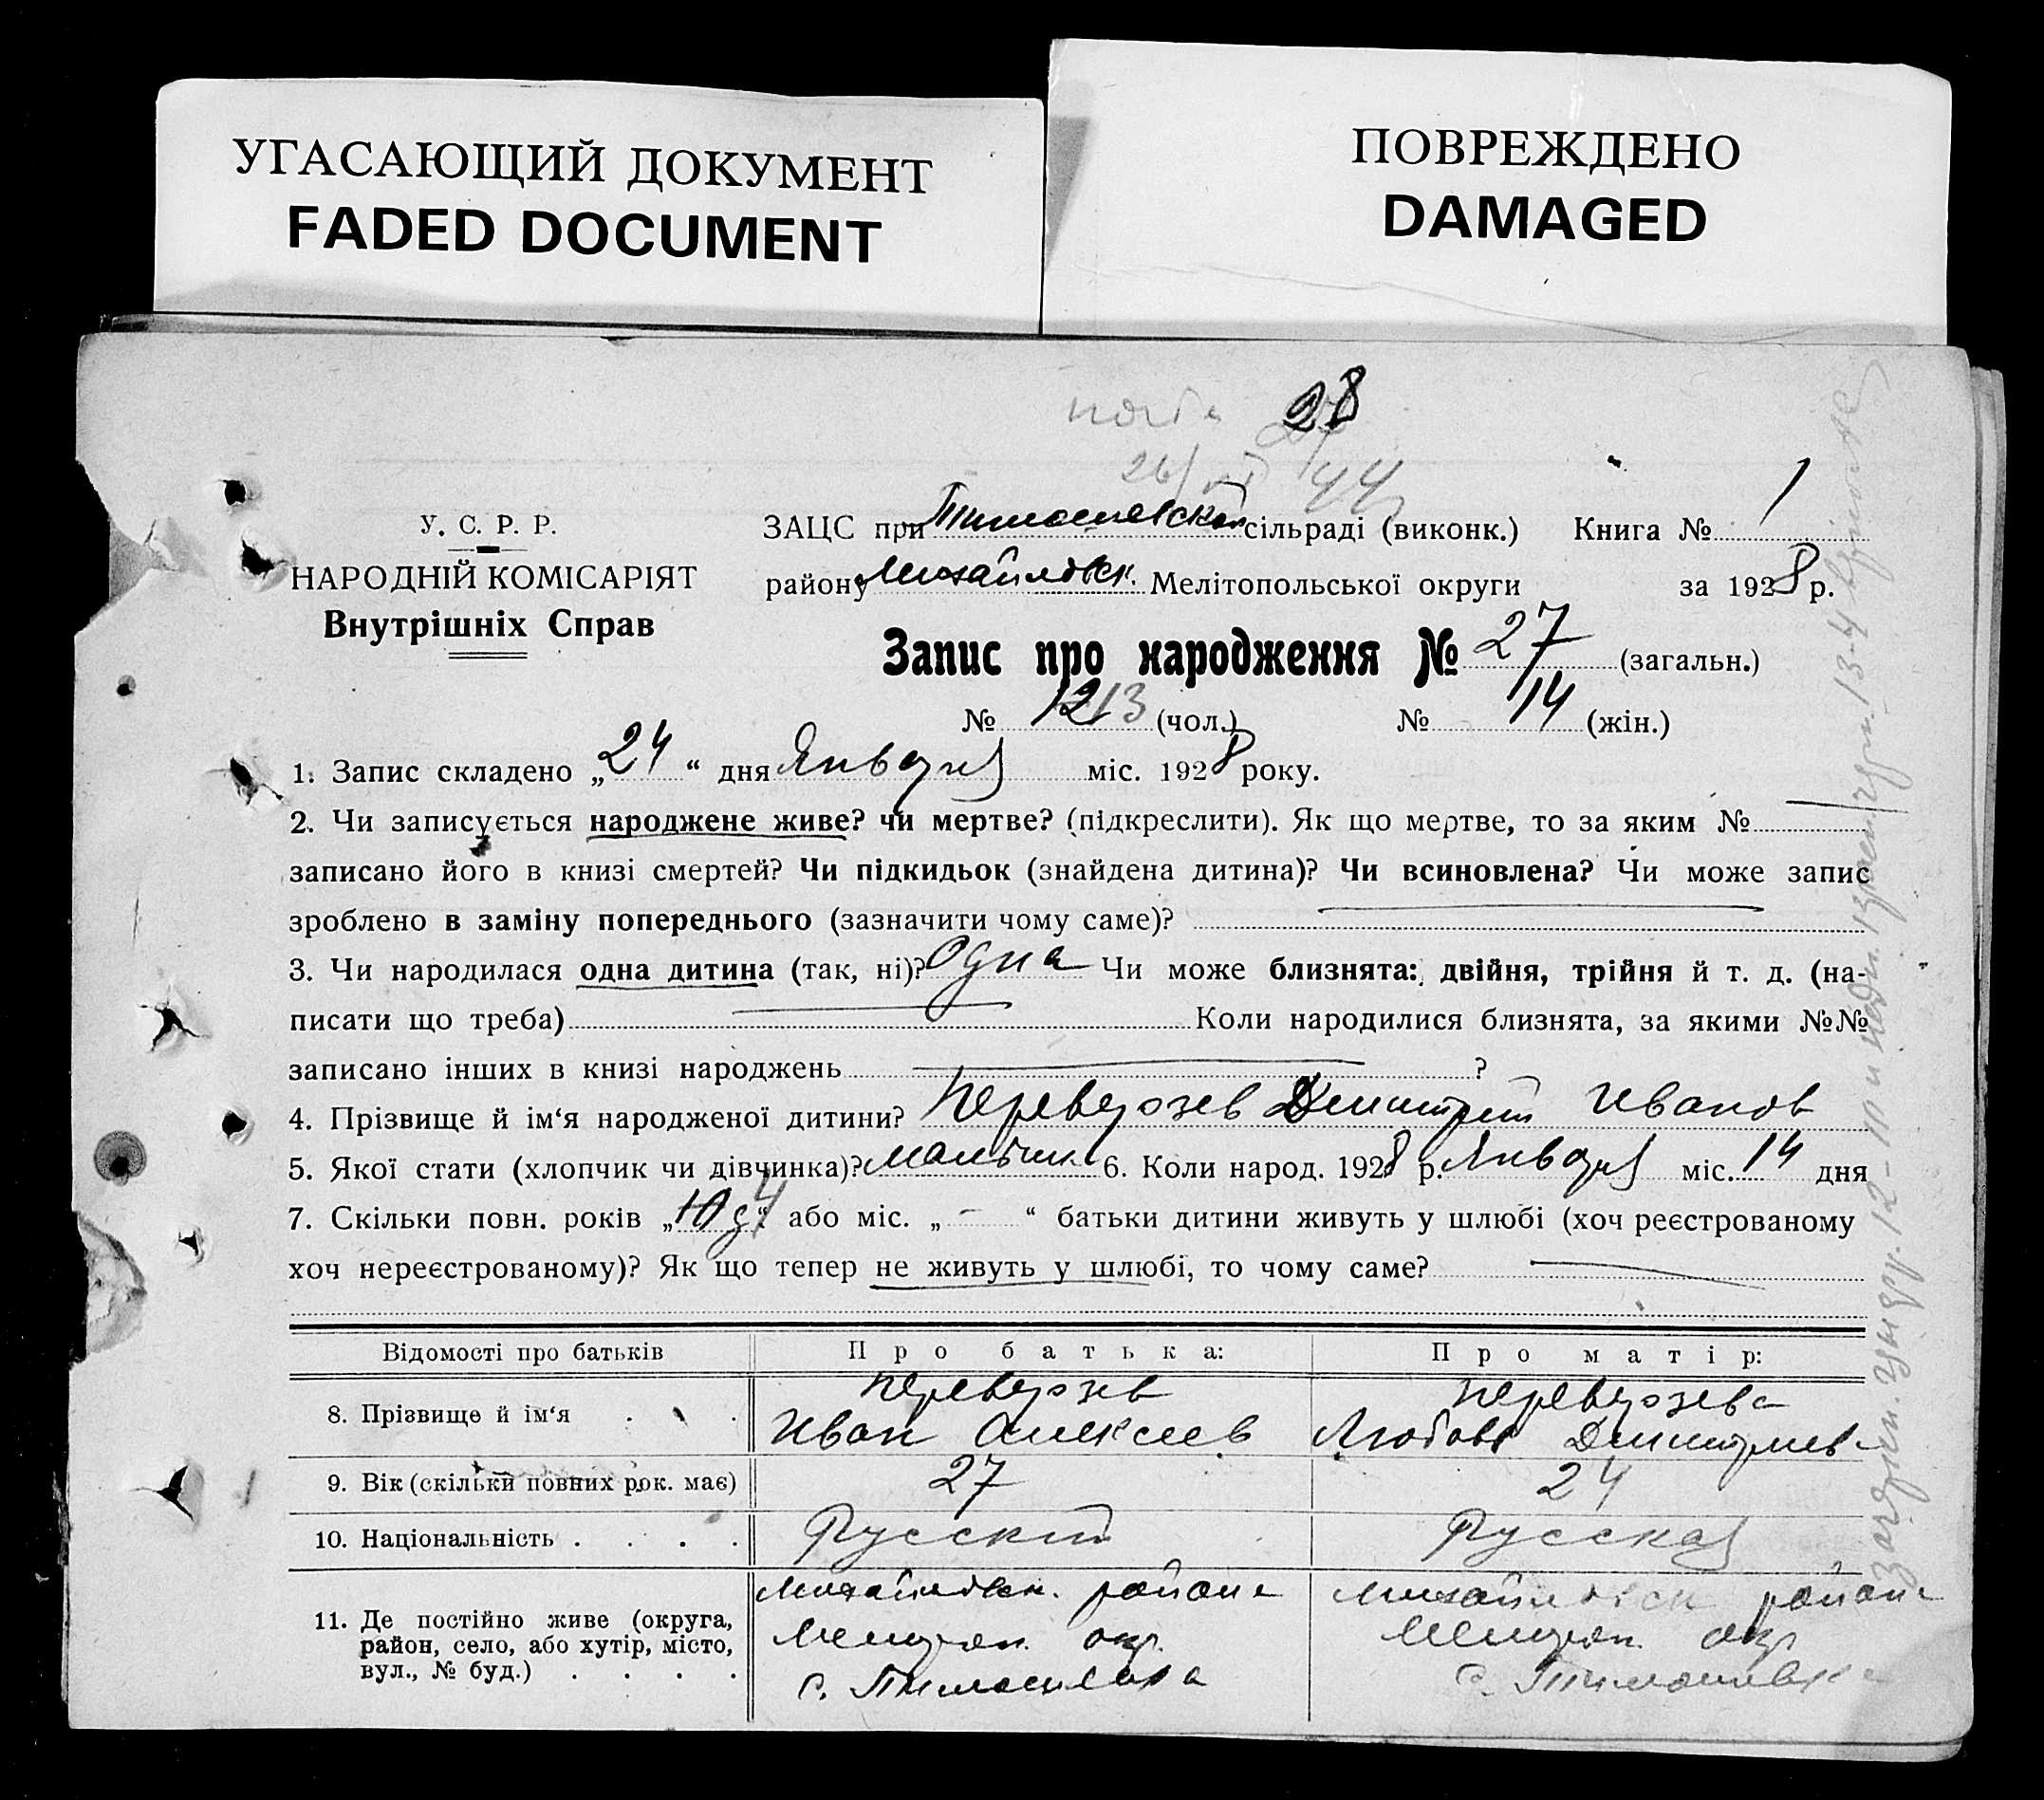 УГАСАЮЩИЙ ДОКУМЕНТ
FADED DOCUMENT
ПОВРЕЖДЕНО
DAMAGED
28
26/VI 44
У. С. Р. Р.
НАРОДНІЙ КОМІСАРІЯТ
Внутрішніх Справ
ЗАЦС при Тимошевской сільраді (виконк.) Книга № 1
району Михайловск. Мелітопольської округи за 1928 р.
Запис про народження № 27 (загальн.)
№ 12 13 (чол.) № 14 (жін.)
1. Запис складено „24“ дня Января міс. 1928 року.
2. Чи записується народжене живе? чи мертве? (підкреслити). Як що мертве, то за яким №
записано його в книзі смертей? Чи підкидьок (знайдена дитина)? Чи всиновлена? Чи може запис
зроблено в заміну попереднього (зазначити чому саме)?
3. Чи народилася одна дитина (так, ні)? Одна Чи може близнята: двійня, трійня й т. д. (на-
писати що треба) Коли народилися близнята, за якими №№
записано інших в книзі народжень ?
4. Прізвище й ім‘я народженої дитини? Переверзев Дмитрий Иванов
5. Якої стати (хлопчик чи дівчинка)? мальчик 6. Коли народ. 1928 р. Января міс. 14 дня
7. Скільки повн. років „ “ або міс. „ – “ батьки дитини живуть у шлюбі (хоч реєстрованому
хоч нереєстрованому)? Як що тепер не живуть у шлюбі, то чому саме?
Відомості про батьків Про батька: Про матір:
8. Прізвище й ім‘я . . . Переверзев Переверзева
Иван Алексеев Любовь Дмитриев
9. Вік (скільки повних рок. має) 27 24
10. Національність . . . . Русский Русская
11. Де постійно живе (округа, район, село, або хутір, місто, вул., № буд.) . . . . Михайловск. района Михайловск района
Мелитоп. окр. Мелитоп. окр
с. Тимошевка с. Тимошевка